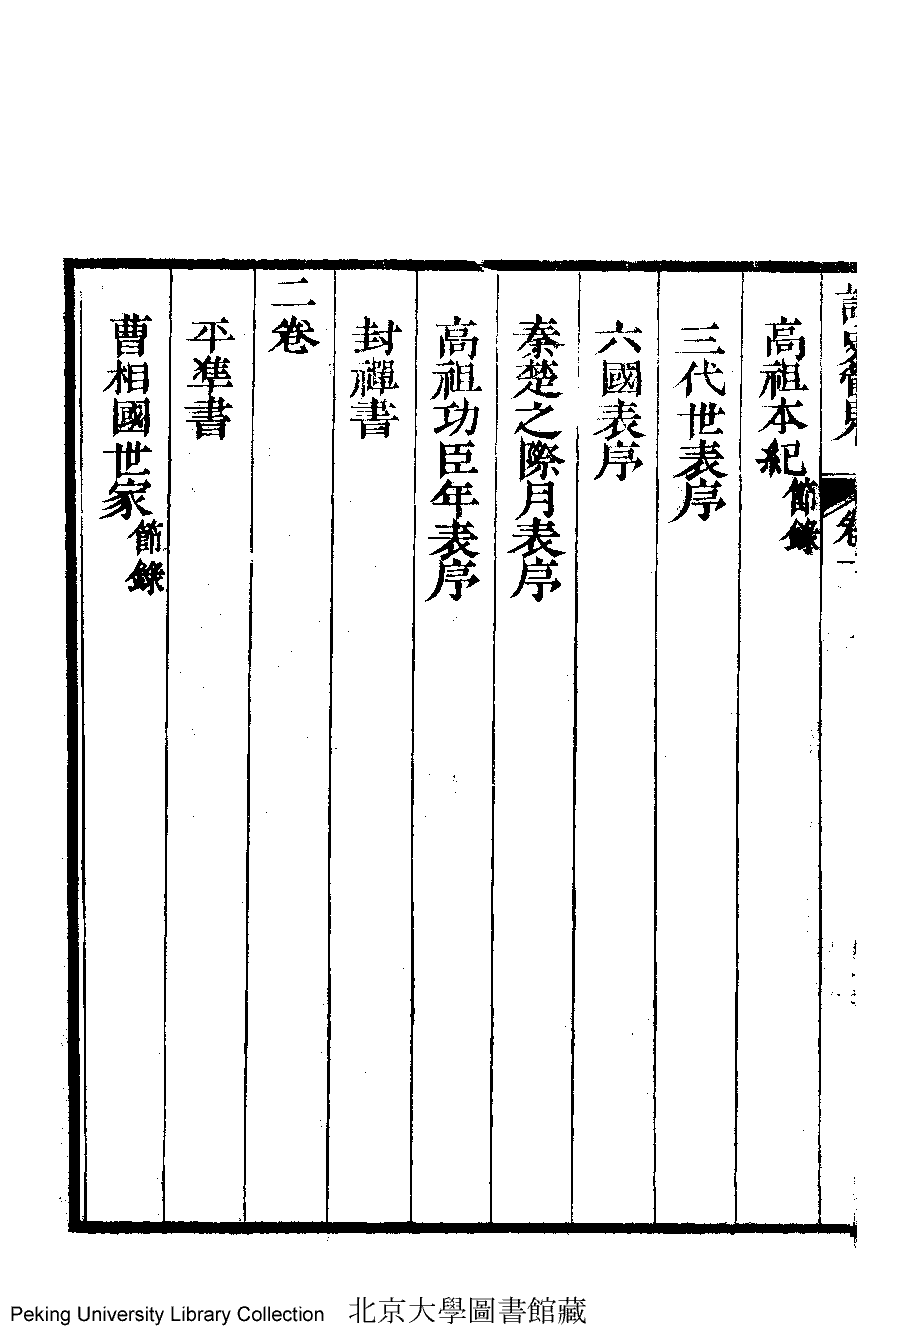 高祖本紀節錄
三代世表序
六國表序
秦楚之際月表序
高祖功臣年表序
封禪書
二卷
平準書
曹相國世家節錄
Peking University Library Collection 北京大學圖書館藏